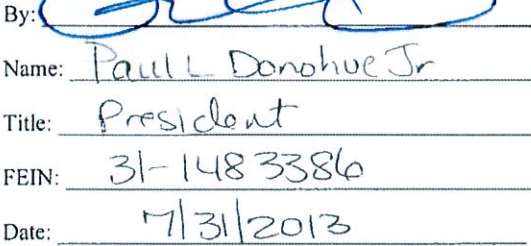 By:
Name: Paul L Donohue Jr
Title: President
FEIN: 31-1483386
Date: 7/31/2013